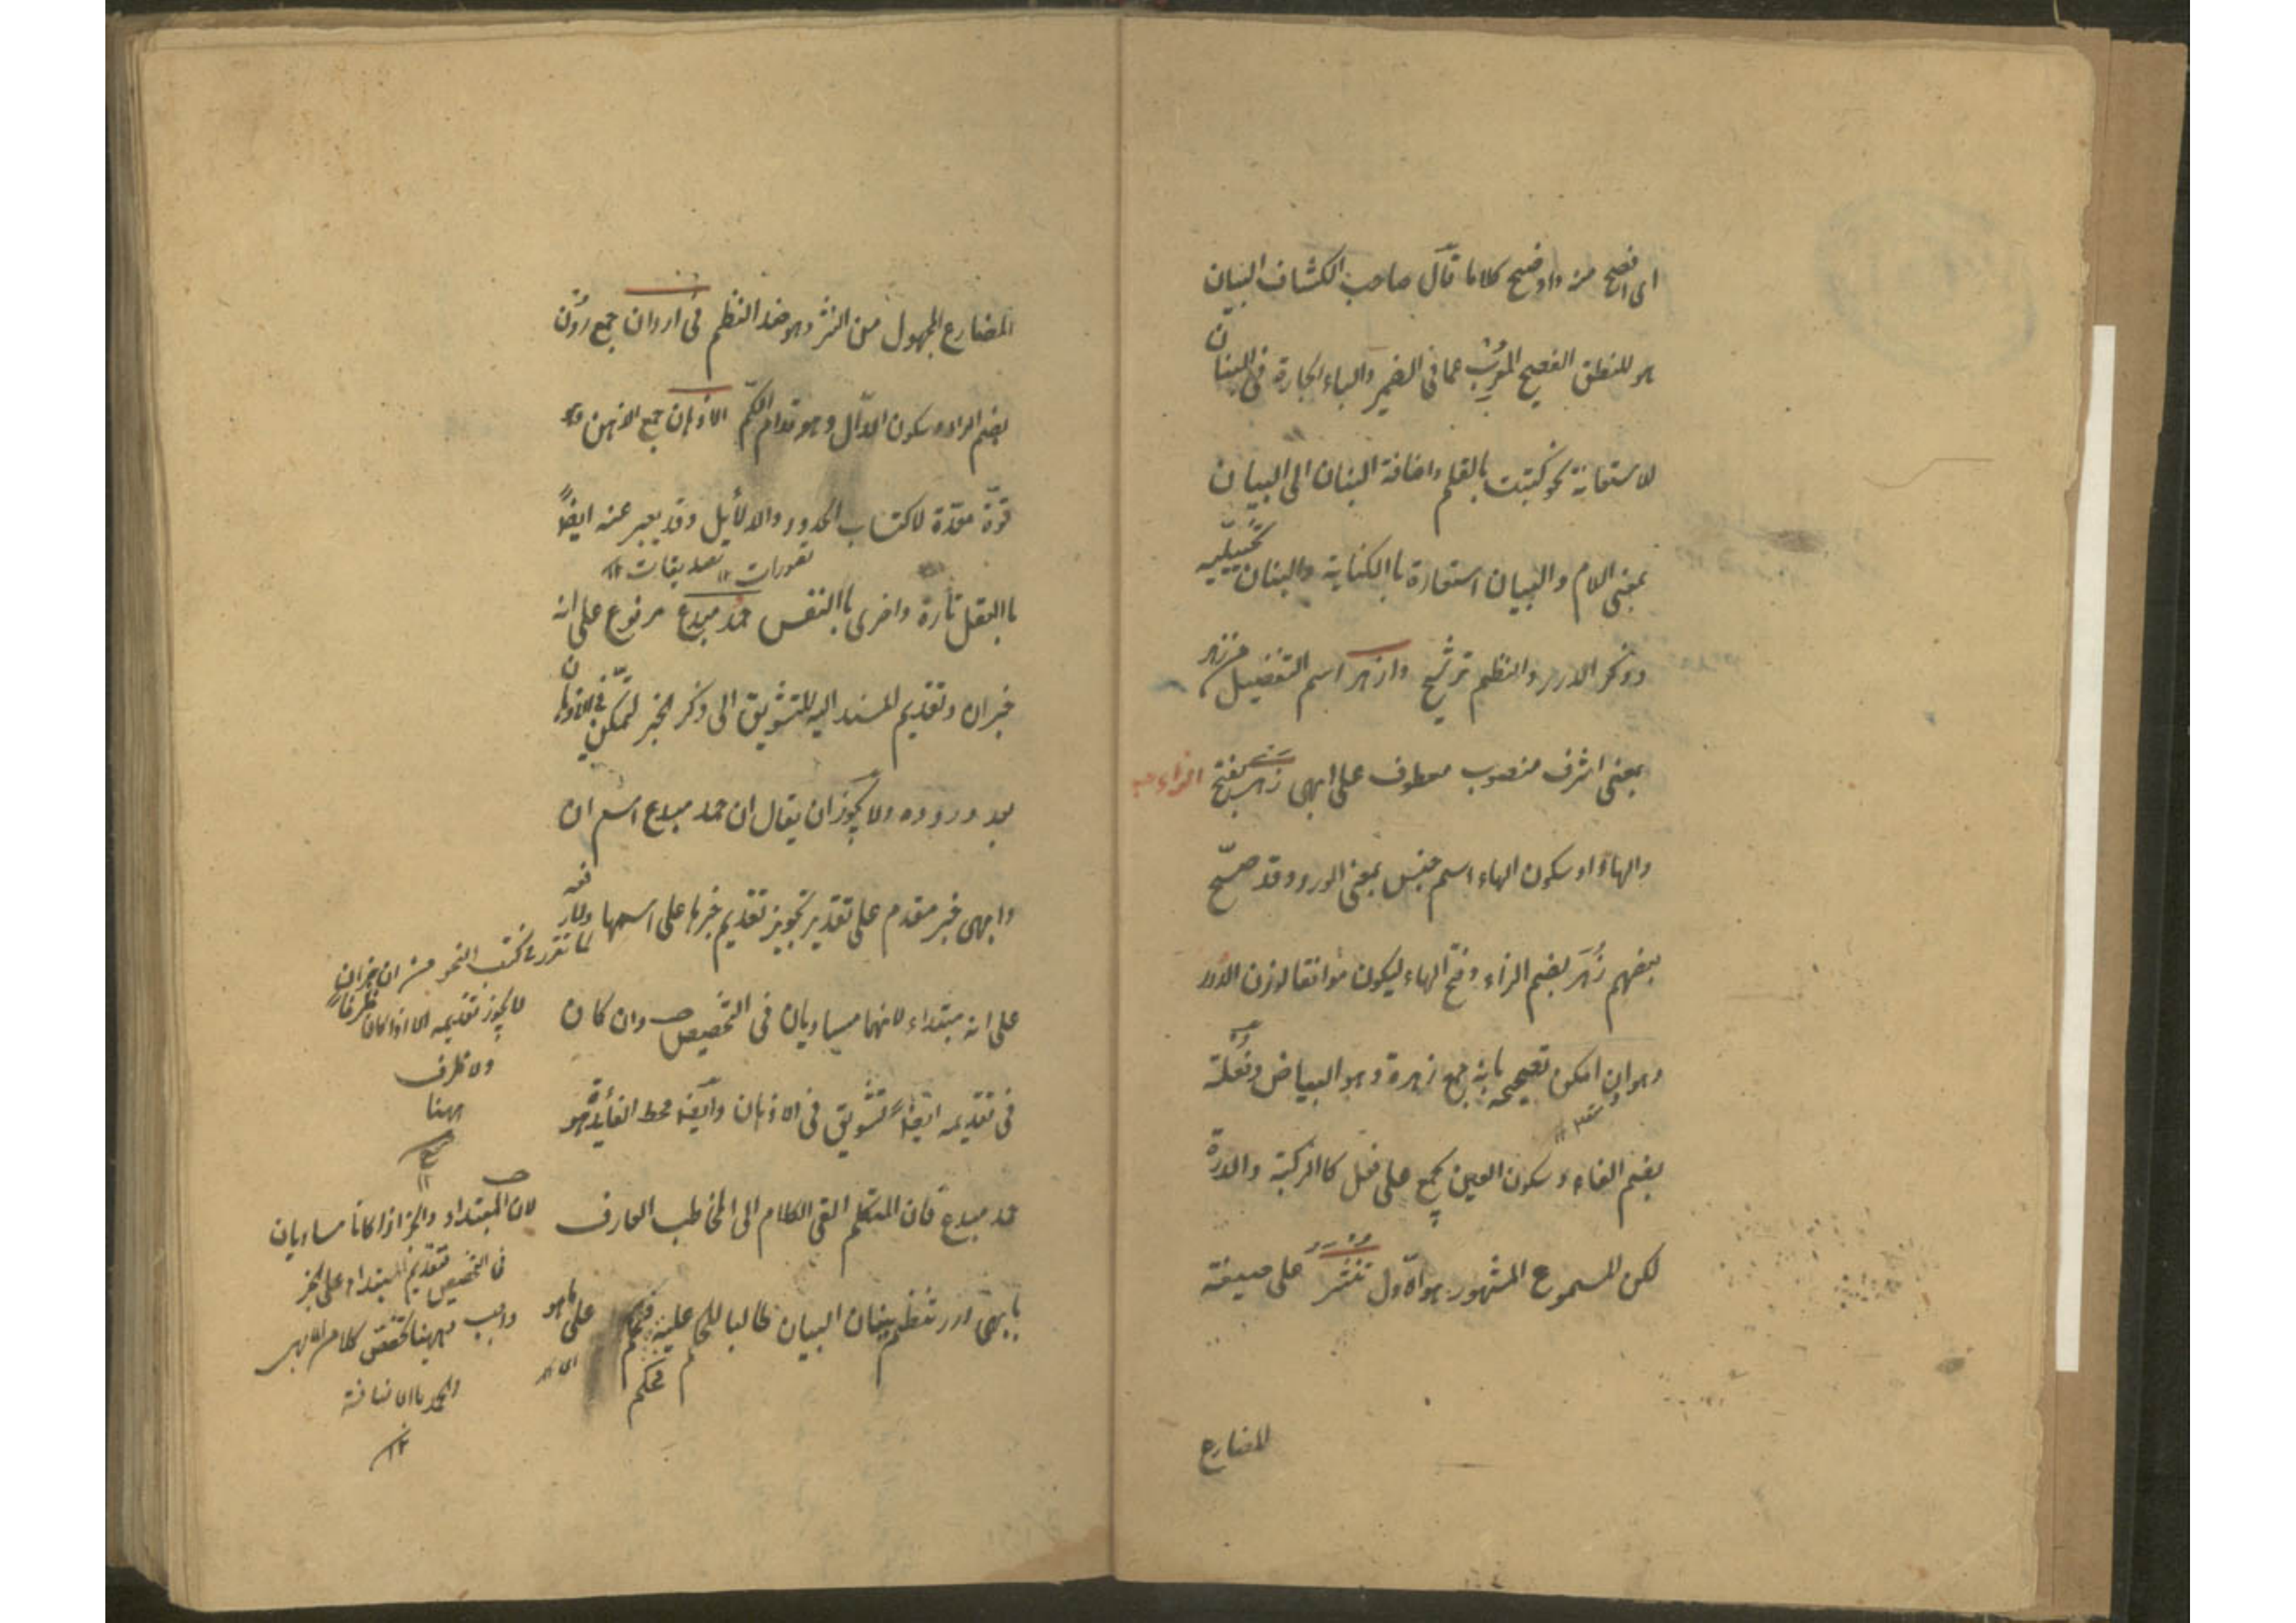 اى افصح من و اوضح كلاما قال صاحب الكشاف البيان
هو المنطق الفصيح المعرب عما فى الضمير والباء الجارة فى البنان
للاستعانة نحو كتبت بالقلم واضافة البنان الى البيان
بمعنى اللام والبيان استعارة باالكناية والبنان تخييلية
وذكر الدرر والنظم ترشيح وازهر اسم التفضيل من زهر
بمعنى اشرف منصوب معطوف على ابهى زهر بفتح الزاء
والهاء او سكون الهاء اسم جنس بمعنى الورد وقد صحح
بعضهم زُهَر بضم الزاء وفتح الهاء ليكون موافقا لوزن الدرر
وهو وان امكن تصحيحه بانه جمع زهرة وهو البياض وفعلة
بضم الفاء وسكون العين يجمع على فعل كاالركبة والدرة
لكن المسموع المشهور هو الاول تنثر على صيغة
المضارع
المضارع المجهول من النثر وهو ضد النظم فى اردان جمع ردن
بضم الراء وسكون الدال وهو قدام الكم الاذهان جمع الذهن وهو
قوة معدة لاكتساب الحدود والدلائل وقد يعبر عنه ايضا
تصورات ١٢ تصديقات ١٢
باالعقل تارة واخرى باالنفس حمد مبدع مرفوع على انه
خبر ان وتقديم المسند اليه للتشويق الى ذكر الخبر ليتمكن فى الاذهان
بعد وروده ولا يجوز ان يقال ان حمد مبدع اسم ان
وابهى خبر مقدم على تقدير تجويز تقديم خبرها على اسمها
على انه مبتداء لانهما مساويان فى التخصيص وان كان
فى تقديمه ايضا تشويق فى الاذهان وايضا محط الفائدة هو
حمد مبدع فان المتكلم القى الكلام الى المخاطب العارف
بابهى درر تنظم ببنان البيان طالبا للحكم عليه فيحكم على ما هو
فيحكم
لما تقرر فى كتب النحو من ان خبر ان
لا يجوز تقديمه الا اذا كان ظرفا
ولا ظرف
ههنا
١٢
لان المبتداء والخبر اذا كانا مساويان
فى التخصيص فتقديم المبتداء على الخبر
واجب وههنا تخصص كلا من
والحمد باالاضافة
١٢